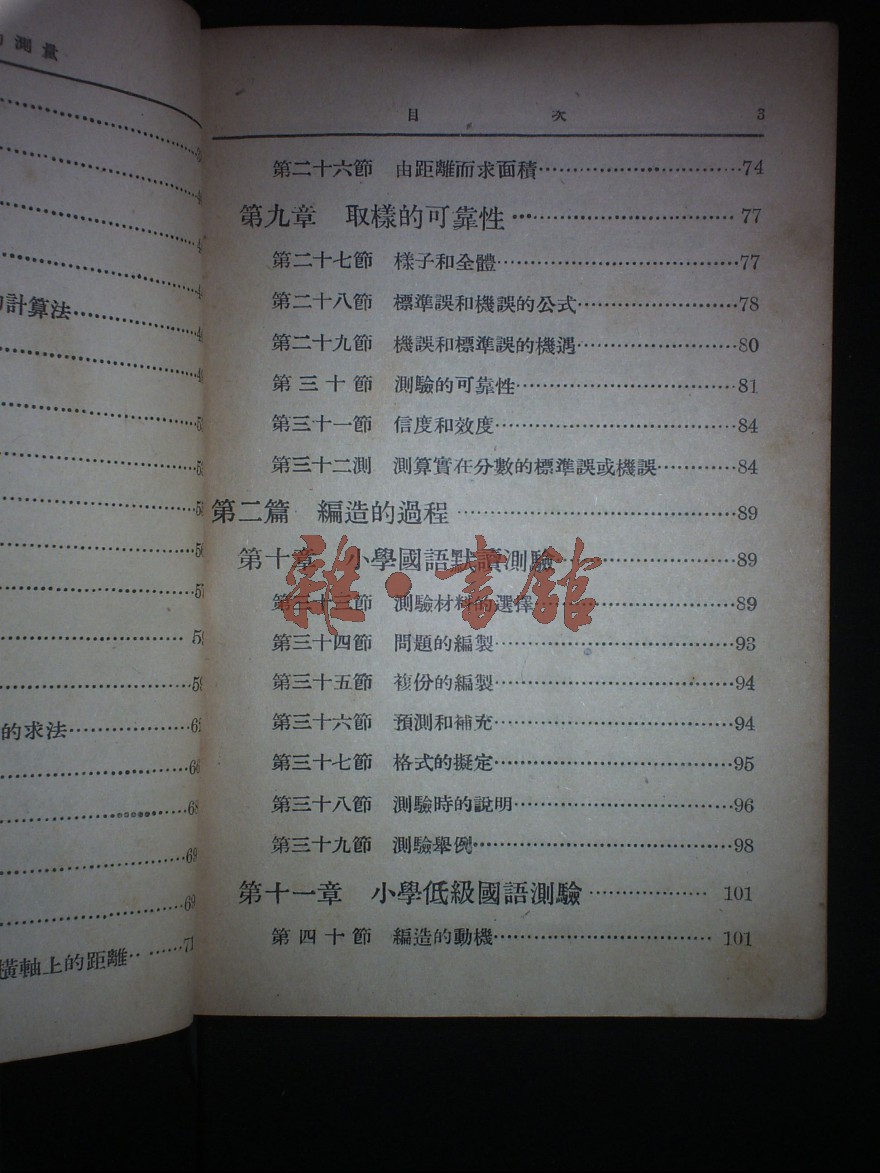 測量
計算法……………
的求法……………
橫軸上的距離………71
目次 3
第二十六節 由距離而求面積……………74
第九章 取樣的可靠性……………77
第二十七節 樣子和全體……………77
第二十八節 標準誤和機誤的公式……………78
第二十九節 機誤和標準誤的機遇……………80
第三十節 測驗的可靠性……………81
第三十一節 信度和效度……………84
第三十二測 測算實在分數的標準誤或機誤……………84
第二篇 編造的過程……………89
第十章 小學國語默讀測驗……………89
第三十三節 測驗材料的選擇……………89
第三十四節 問題的編製……………93
第三十五節 複份的編製……………94
第三十六節 預測和補充……………94
第三十七節 格式的擬定……………95
第三十八節 測驗時的說明……………96
第三十九節 測驗舉例……………98
第十一章 小學低級國語測驗……………101
第四十節 編造的動機……………101
雜·書館